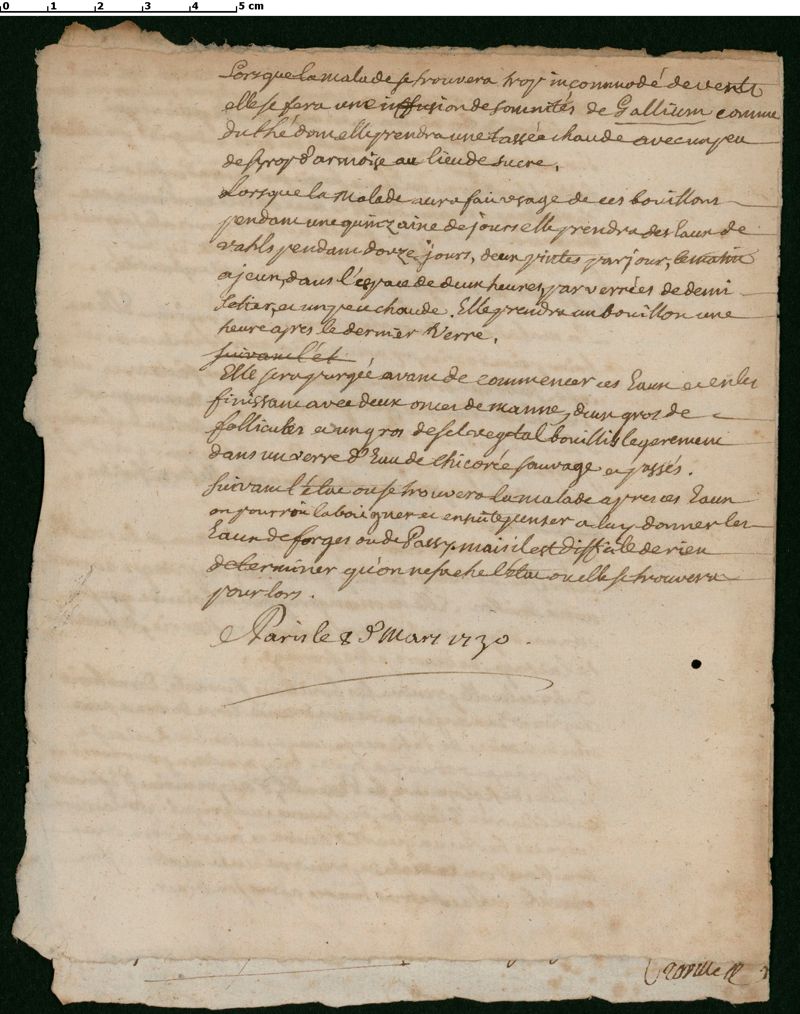 0 1 2 3 4 5 cm
Lorsque la malade se trouvera trop incommodé de vents
elle se fera une infusion de somités de Gallium comme
du thé dont elle prendra une tassée chaude avec un peu
de syrop d'armoise au lieu de sucre.
Lorsque la malade aura fait usage de ces bouillons
pendant une quinzaine de jours elle prendra des Eaux de
vahls pendant douze jours, deux pintes par jour, le matin
a jeun, dans l'espace de deux heures, par verrées de demi
setier, et un peu chaude. Elle prendra un bouillon une
heure apres le dernier Verre.
suivant l'ét
Elle sera purgée avant de commencer ces Eaux et en les
finissant avec deux onces de manne, d'un gros de
follicules et un gros de sel vegetal bouillis legerement
dans un verre d'Eau de chicorée sauvage et passés.
suivant l'état ou se trouvera la malade apres ces Eaux
on pourroit la baigner et ensuite penser a luy donner les
Eaux de forges ou de Passy. mais il est difficile de rien
determiner qu'on ne sache l'état ou elle se trouvera
pour lors.
A Paris le 8 de Mars 1730.